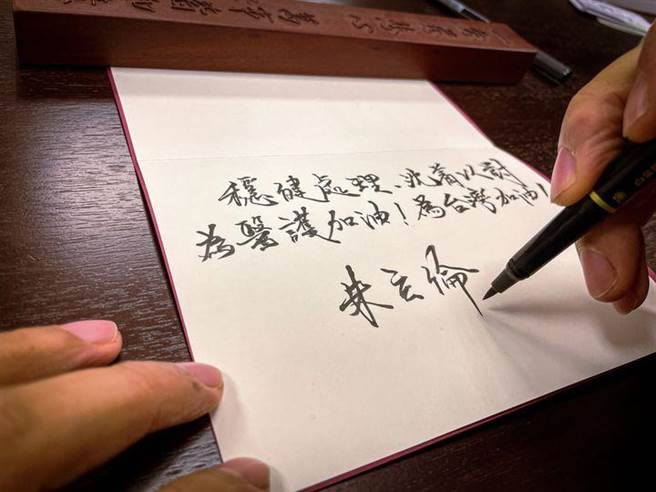 穩健處理、沈著以對
為醫護加油！為台灣加油！
朱立倫